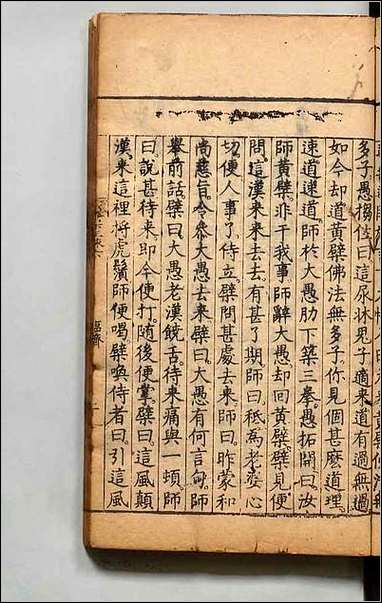 多子。愚搊住曰。這尿牀鬼子。適來道有過無過。
如今却道黃檗佛法無多子。你見個甚麼道理。
速道速道。師於大愚肋下築三拳。愚拓開曰。汝
師黃檗。非干我事。師辭大愚。却回黃檗。檗見便
問。這漢來來去去。有甚了期。師曰。秖為老婆心
切。便人事了。侍立。檗問。甚處去來。師曰。昨蒙和
尚慈旨。令參大愚去來。檗曰。大愚有何言句。師
舉前話。檗曰。大愚老漢饒舌。待來痛與一頓。師
曰。說甚待來。即今便打。隨後便掌。檗曰。這風顛
漢。來這裡捋虎鬚。師便喝。檗喚侍者曰。引這風
臨濟